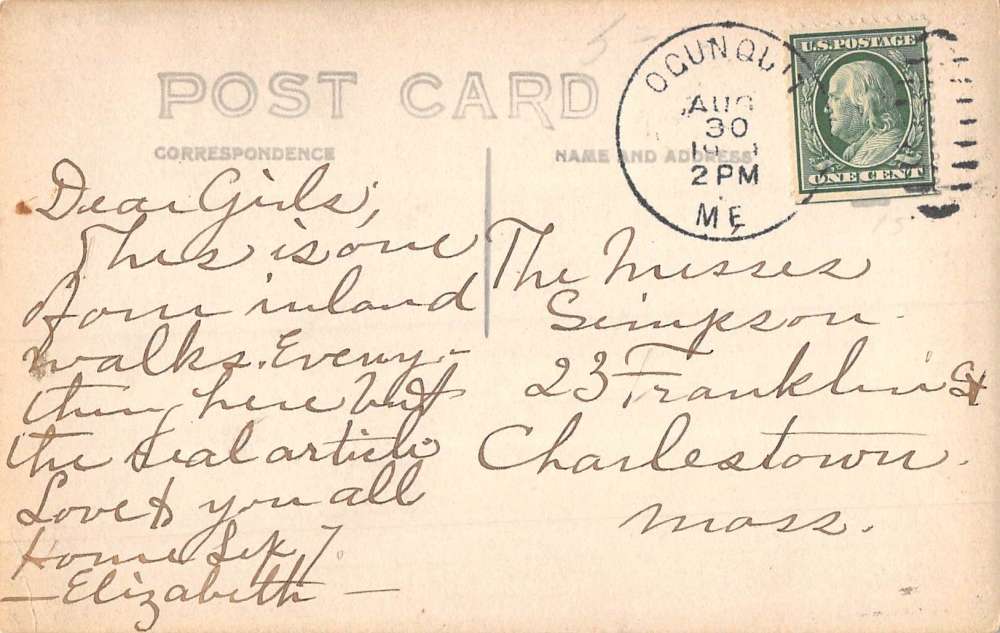 POST CARD
CORRESPONDENCE
NAME AND ADDRESS
OGUNQUIT
AUG
30
2 PM
ME
U.S. POSTAGE
ONE CENT
Dear Girls,
This is one
of our inland
walks. Every-
thin, here but
the real article
Love to you all
Home Sep. 7.
— Elizabeth —
The Misses
Simpson
23 Franklin St
Charlestown.
Mass.